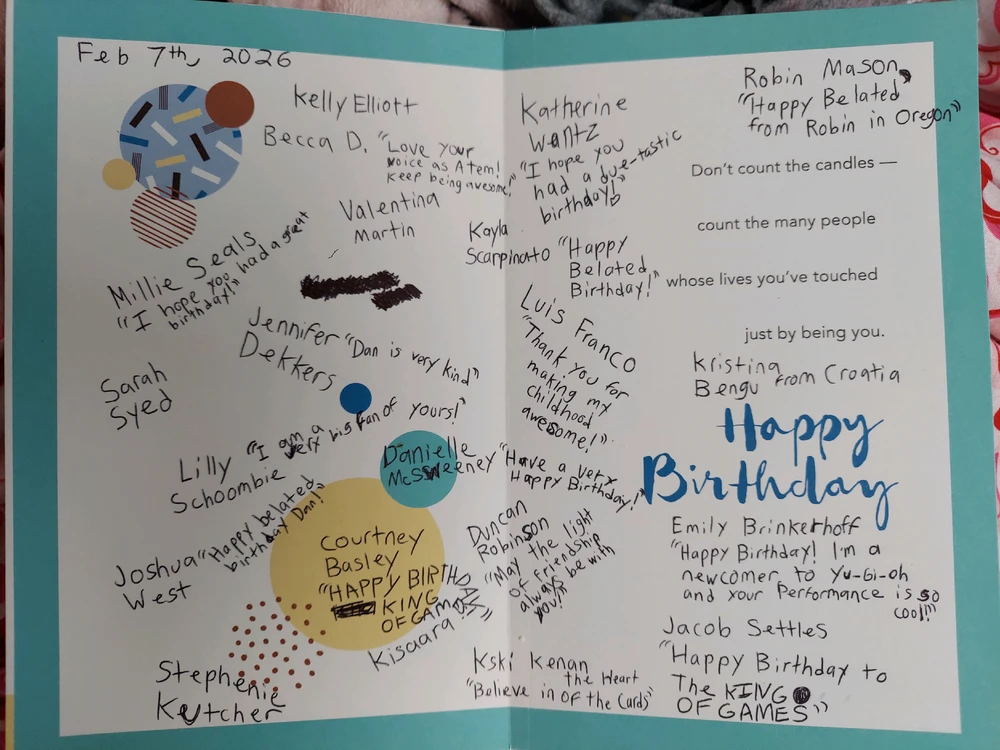 Feb 7th, 2026
Kelly Elliott
Becca D. "Love your
voice as Atem!
Keep being awesome!"
Valentina
Martin
Millie Seals
"I hope you had a great
birthday!"
Jennifer "Dan is very kind"
Dekkers
Sarah
Syed
Lilly "I am a
very big fan of yours!"
Schoombie
Danielle
McSweeney "Have a very
Happy Birthday!"
Joshua "Happy belated
birthday Dan!"
West
Courtney
Basley
"HAPPY BIRTHDAY
KING
OF GAMES!"
Kisaara
Stephenie
Kutcher
Katherine
Wantz
"I hope you
had a due-tastic
birthday!"
Kayla
Scarpinato "Happy
Belated
Birthday!"
Luis Franco
"Thank you for
making my
childhood
awesome!"
Duncan
Robinson
"May the light
of friendship
always be with
you!"
Kski Kenan
the Heart
"Believe in OF the Cards"
Robin Mason,
"Happy Belated
from Robin in Oregon"
Don't count the candles —
count the many people
whose lives you've touched
just by being you.
Kristina
Bengu from Croatia
Happy
Birthday
Emily Brinkerhoff
"Happy Birthday! I'm a
newcomer to Yu-Gi-oh
and your Performance is so
cool!"
Jacob Settles
"Happy Birthday to
The KING
OF GAMES"